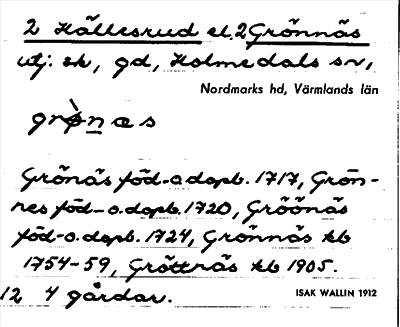 2 Hällesrud el. 2 Grönnäs
utj. sk, gd, Holmedals sn,
Nordmarks hd, Värmlands län
grø̀næs
Grönäs föd-o.dopb. 1717, Grön-
nes föd-o.dopb. 1720, Gröönäs
föd-o.dopb. 1724, Grönnäs kb
1754-59, Gröttnäs kb 1905.
12 4 gårdar.
ISAK WALLIN 1912